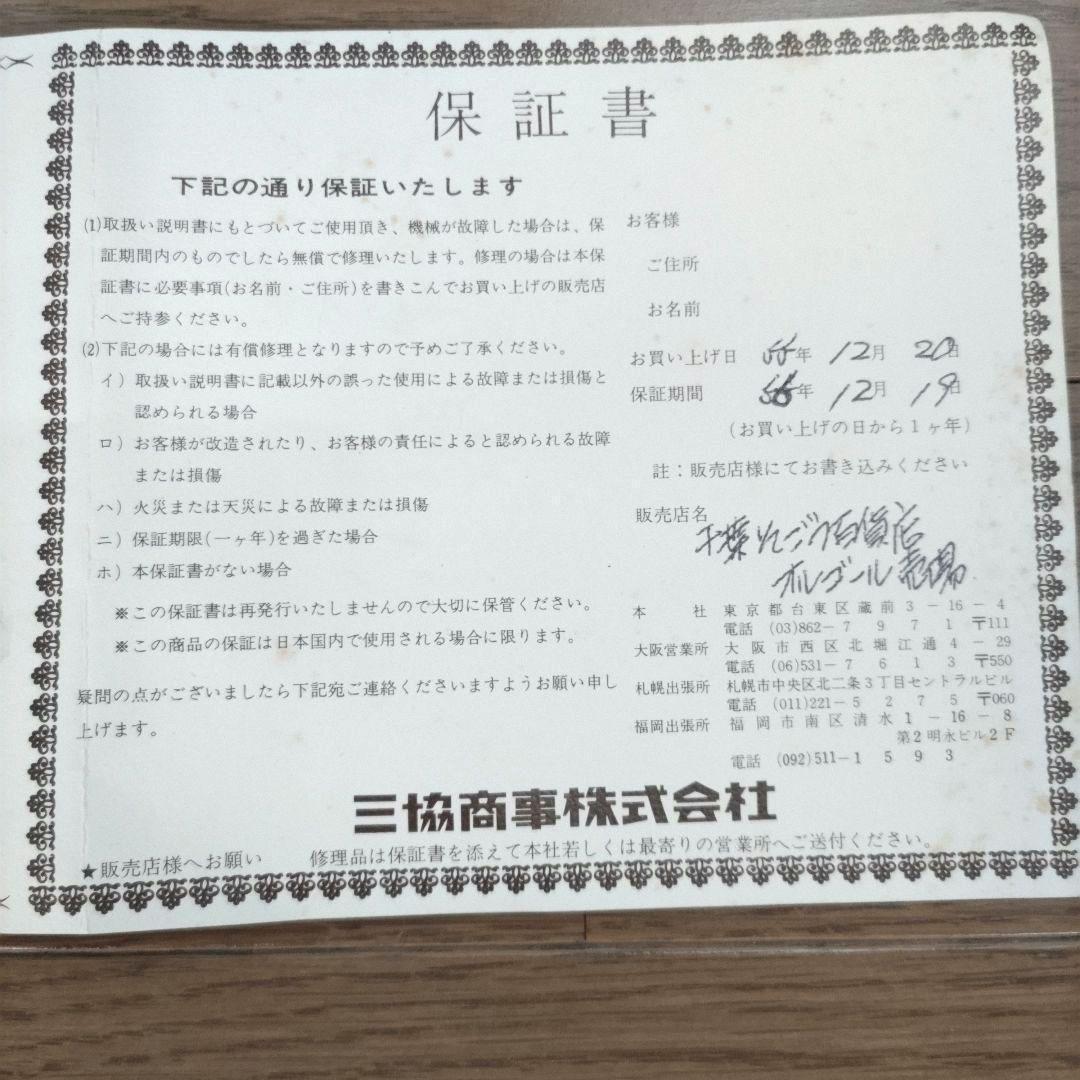 保証書
下記の通り保証いたします
(1)取扱い説明書にもとづいてご使用頂き、機械が故障した場合は、保
証期間内のものでしたら無償で修理いたします。修理の場合は本保
証書に必要事項(お名前・ご住所)を書きこんでお買い上げの販売店
へご持参ください。
(2)下記の場合には有償修理となりますので予めご了承ください。
イ）取扱い説明書に記載以外の誤った使用による故障または損傷と
認められる場合
ロ）お客様が改造されたり、お客様の責任によると認められる故障
または損傷
ハ）火災または天災による故障または損傷
ニ）保証期限(一ヶ年)を過ぎた場合
ホ）本保証書がない場合
※この保証書は再発行いたしませんので大切に保管ください。
※この商品の保証は日本国内で使用される場合に限ります。
疑問の点がございましたら下記宛ご連絡くださいますようお願い申し
上げます。
お客様
ご住所
お名前
お買い上げ日 55年 12月 20日
保証期間 56年 12月 19日
(お買い上げの日から1ヶ年)
註：販売店様にてお書き込みください
販売店名 千葉そごう百貨店
オルゴール売場
本社 東京都台東区蔵前3-16-4
電話 (03)862-7971 〒111
大阪営業所 大阪市西区北堀江通4-29
電話 (06)531-7613 〒550
札幌出張所 札幌市中央区北二条3丁目セントラルビル
電話 (011)221-5275 〒060
福岡出張所 福岡市南区清水1-16-8
第2明永ビル2F
電話 (092)511-1593
三協商事株式会社
★販売店様へお願い 修理品は保証書を添えて本社若しくは最寄りの営業所へご送付ください。